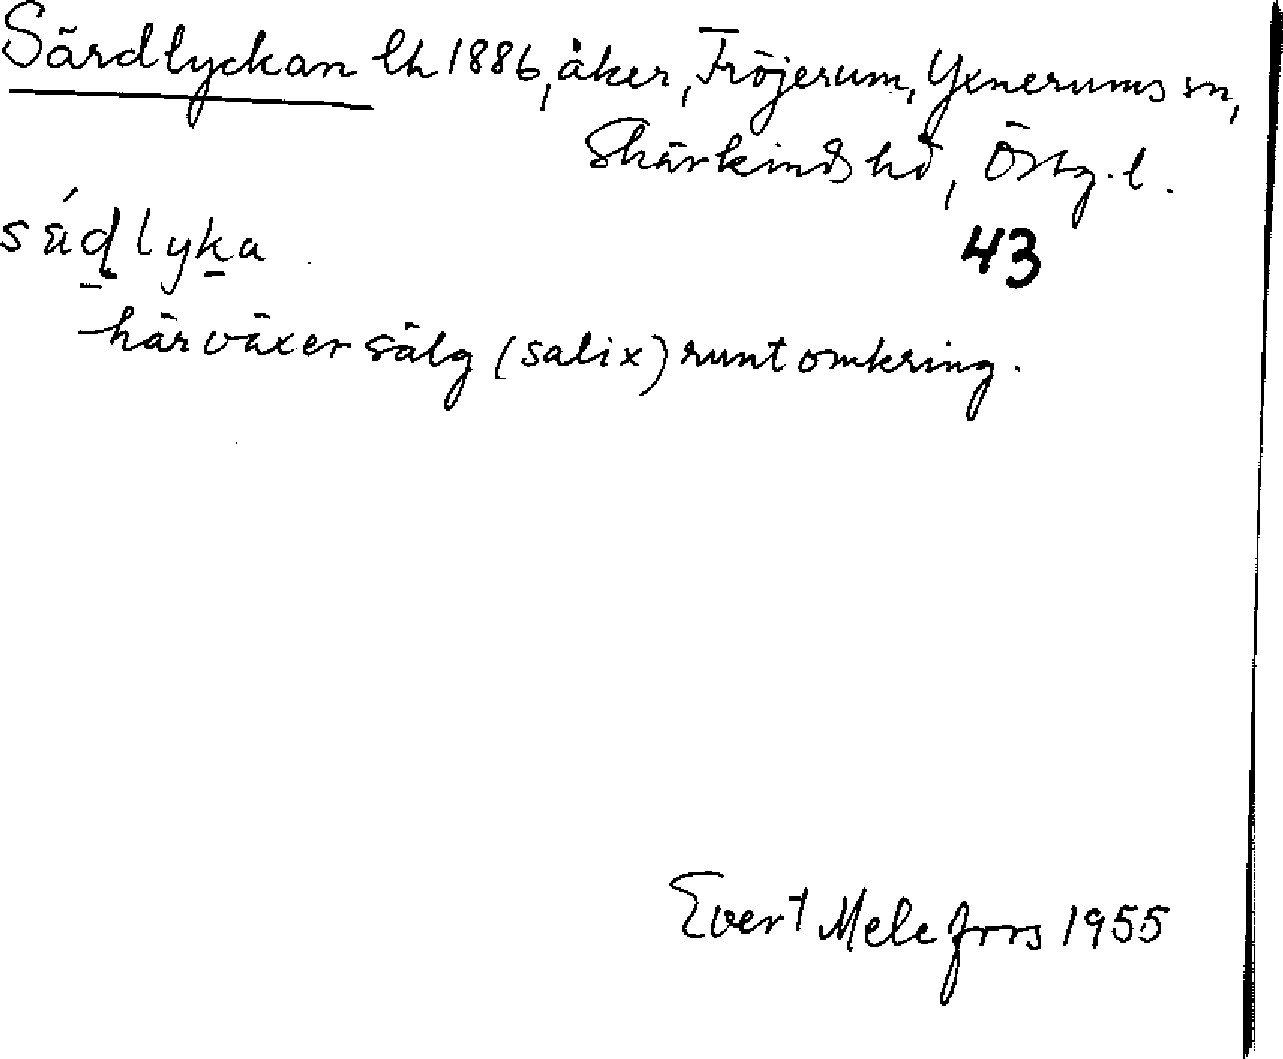 Särdlyckan lh 1886, åker, Fröjerum, Yxnerums sn,
Skärkinds hd, Östg. l.
43
sä́ḍlyḵa
här växer sälg (salix) runt omkring.
Evert Melefors 1955